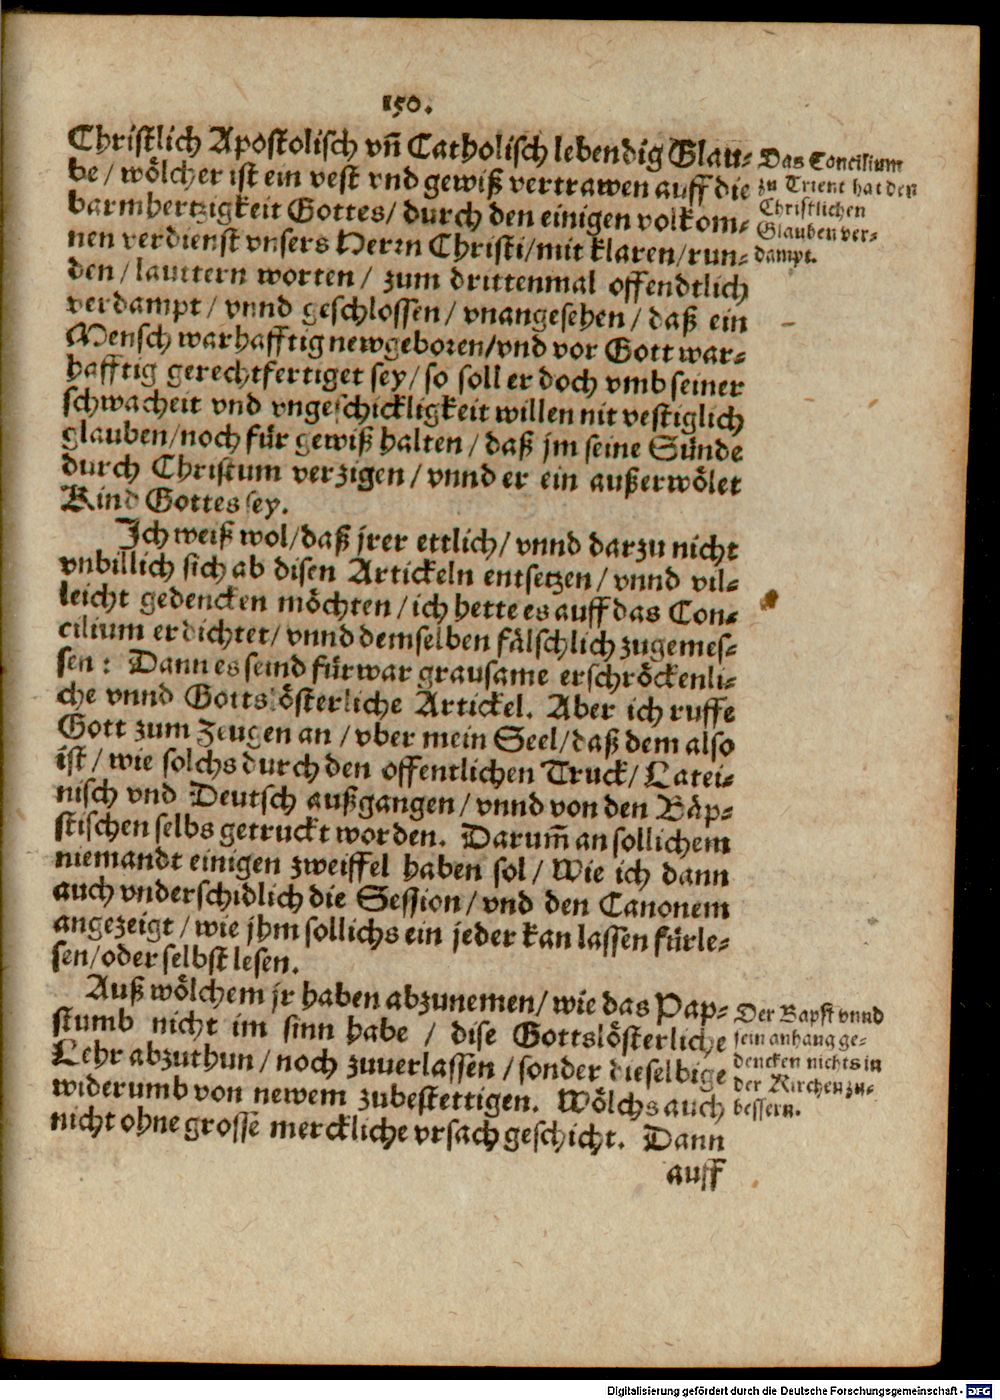 150.
Christlich Apostolisch vn̄ Catholisch lebendig Glau-
be / wölcher ist ein vest vnd gewiß vertrawen auff die
barmhertzigkeit Gottes / durch den einigen volkom-
nen verdienst vnsers Herrn Christi / mit klaren / run-
den / lauttern worten / zum drittenmal offendtlich
verdampt / vnnd geschlossen / vnangesehen / daß ein
Mensch warhafftig newgeboren / vnd vor Gott war-
hafftig gerechtfertiget sey / so soll er doch vmb seiner
schwacheit vnd vngeschickligkeit willen nit vestiglich
glauben / noch für gewiß halten / daß jm seine Sünde
durch Christum verzigen / vnnd er ein außerwölet
Kind Gottes sey.
Das Concilium
zu Trient hat den
Christlichen
Glauben ver-
dampt.
Ich weiß wol / daß jrer ettlich / vnnd darzu nicht
vnbillich sich ab disen Artickeln entsetzen / vnnd vil-
leicht gedencken möchten / ich hette es auff das Con-
cilium erdichtet / vnnd demselben fälschlich zugemes-
sen : Dann es seind fürwar grausame erschröckenli-
che vnnd Gottslösterliche Artickel. Aber ich ruffe
Gott zum Zeugen an / vber mein Seel / daß dem also
ist / wie solchs durch den offentlichen Truck / Latei-
nisch vnd Deutsch außgangen / vnnd von den Bäp-
stischen selbs getruckt worden. Darum̄ an sollichem
niemandt einigen zweiffel haben sol / Wie ich dann
auch vnderschidlich die Session / vnd den Canonem
angezeigt / wie jhm sollichs ein jeder kan lassen fürle-
sen / oder selbst lesen.
Auß wölchem jr haben abzunemen / wie das Pap-
stumb nicht im sinn habe / dise Gottslösterliche
Lehr abzuthun / noch zuuerlassen / sonder dieselbige
widerumb von newem zubestettigen. Wölchs auch
nicht ohne grosse merckliche vrsach geschicht. Dann
Der Bapst vnnd
sein anhang ge-
dencken nichts in
der Kirchen zu-
bessern.
auff
Digitalisierung gefördert durch die Deutsche Forschungsgemeinschaft - DFG